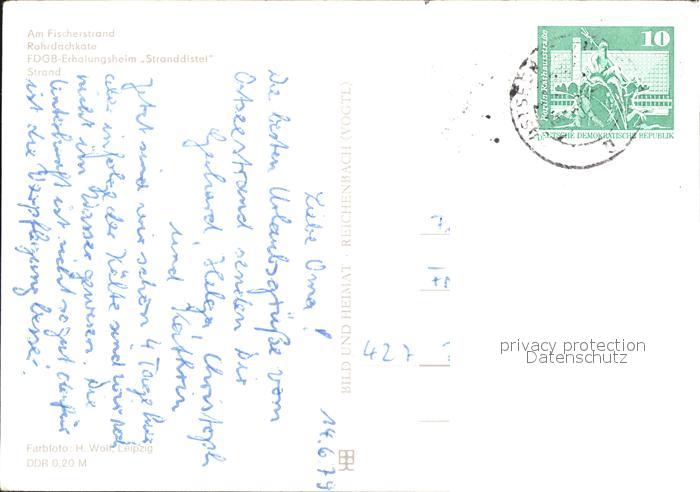 Am Fischerstrand
Rohrdachkate
FDGB-Erholungsheim „Stranddistel"
Strand
14.6.79
Liebe Oma!
Die besten Urlaubsgrüße vom
Ostseestrand senden Dir
Gerhard, Helga, Christoph
und Kathrin
Jetzt sind wir schon 4 Tage hier
aber infolge der Kälte sind wir noch
nicht im Wasser gewesen. Die
Unterkunft ist nicht so gut dafür
ist die Verpflegung besser.
Farbfoto: H. Wolf, Leipzig
DDR 0,20 M
BILD UND HEIMAT · REICHENBACH (VOGTL)
10
Berlin Rathausstraße
DEUTSCHE DEMOKRATISCHE REPUBLIK
427
privacy protection
Datenschutz